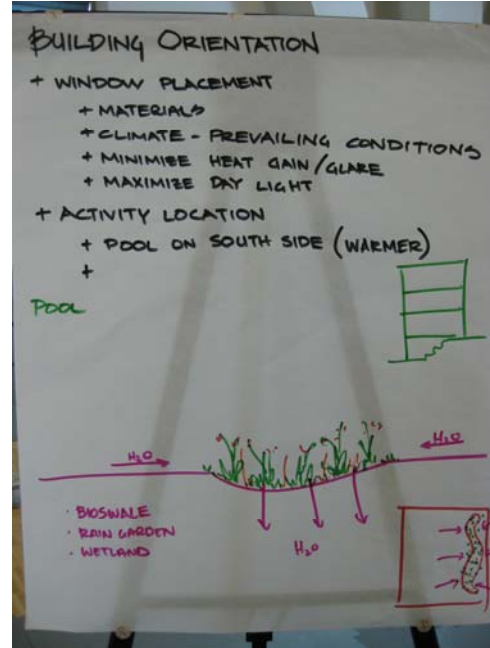 BUILDING ORIENTATION
+ WINDOW PLACEMENT
+ MATERIALS
+ CLIMATE - PREVAILING CONDITIONS
+ MINIMIZE HEAT GAIN/GLARE
+ MAXIMIZE DAY LIGHT
+ ACTIVITY LOCATION
+ POOL ON SOUTH SIDE (WARMER)
+
POOL
H2O
H2O
· BIOSWALE
· RAIN GARDEN
· WETLAND
H2O